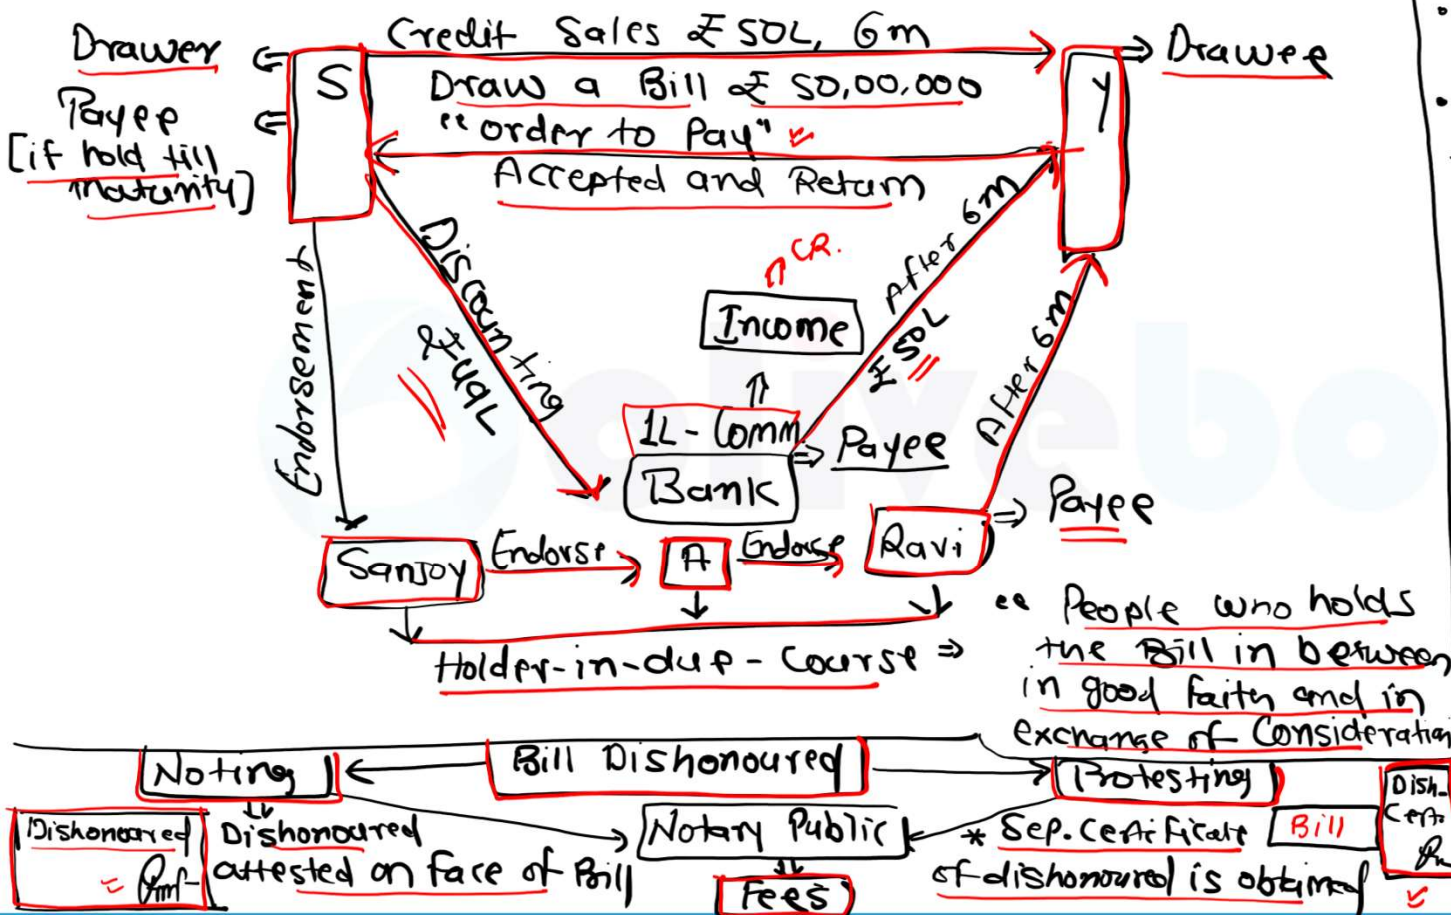 Drawer
Payee
[if hold till
maturity]
S
Credit Sales ₹ 50L, 6m
Draw a Bill ₹ 50,00,000
"order to Pay"
Accepted and Return
Y
Drawee
Endorsement
Discounting
₹49L
CR.
Income
After 6m
₹ 50L
After 6m
1L-Comm
Bank
Payee
Sanjoy
Endorse
A
Endorse
Ravi
Payee
Holder-in-due-Course ⇒
"People who holds
the Bill in between
in good faith and in
exchange of Consideration
Noting
Bill Dishonoured
Protesting
Dishonoured
Dishonoured
attested on face of Bill
Notary Public
Fees
* Sep. Certificate
of dishonoured is obtained
Bill
Dish-
Certi